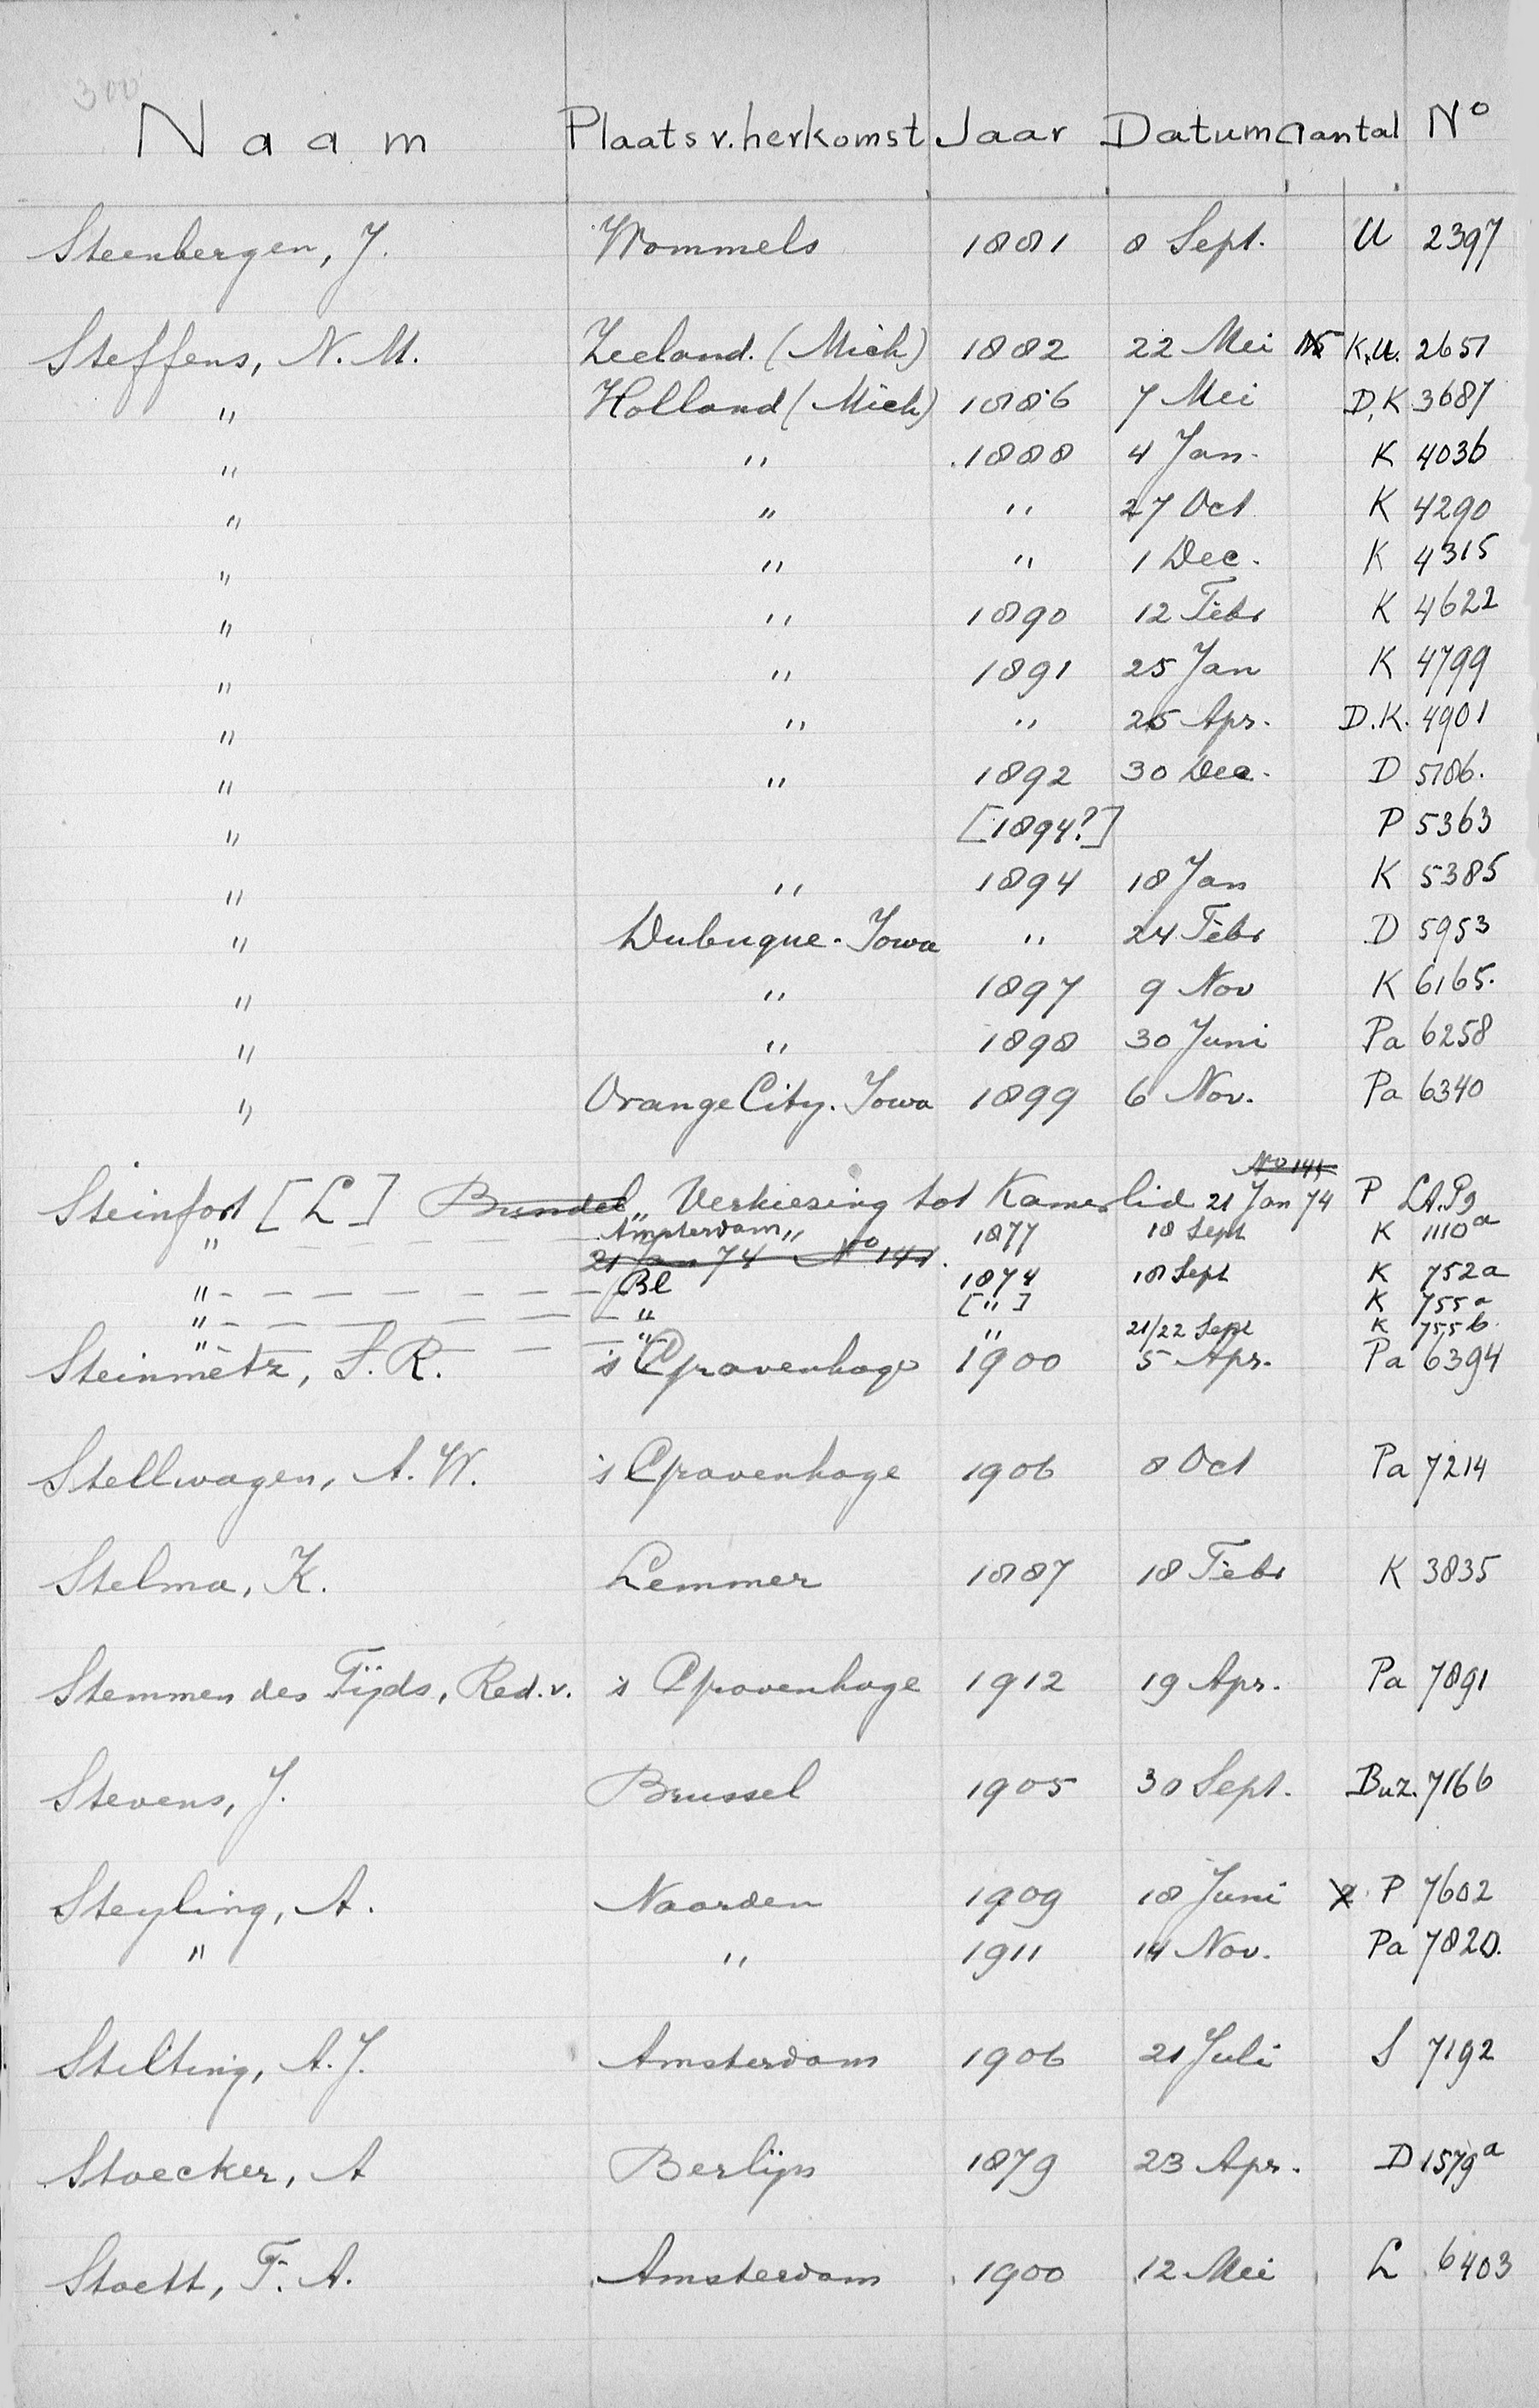 300
Naam Plaats v. herkomst Jaar Datum Aantal No
Steenbergen, J. Wommels 1881 8 Sept. U 2397
Steffens, N. M. Zeeland. (Mich) 1882 22 Mei K.U. 2651
" Holland (Mich) 1886 7 Mei D,K 3687
" " 1888 4 Jan. K 4036
" " " 27 Oct K 4290
" " " 1 Dec. K 4315
" " 1890 12 Febr K 4622
" " 1891 25 Jan K 4799
" " " 25 Apr. D.K. 4901
" " 1892 30 Dec. D 5186.
" [1894?] P 5363
" " 1894 18 Jan K 5385
" Dubuque. Iowa " 24 Febr D 5953
" " 1897 9 Nov K 6165.
" " 1898 30 Juni Pa 6258
" Orange City. Iowa 1899 6 Nov. Pa 6340
No 145
Steinfort [L] Bundel „Verkiezing tot Kamerlid 21 Jan 74 P LA.P9
" Amsterdam" 1877 18 Sept K 1110a
21 Jan 74 No 141.
" Bl 1874 18 Sept K 752a
" " ["] K 755a
" " " 21/22 Sept K 755b
Steinmetz, S. R. 's Gravenhage 1900 5 Apr. Pa 6394
Stellwagen, A. W. 's Gravenhage 1906 8 Oct Pa 7214
Stelma, K. Lemmer 1887 18 Febr K 3835
Stemmen des Tijds, Red. v. 's Gravenhage 1912 19 Apr. Pa 7891
Stevens, J. Brussel 1905 30 Sept. Buz. 7166
Steyling, A. Naarden 1909 18 Juni 2 P 7602
" " 1911 14 Nov. Pa 7820.
Stilting, A. J. Amsterdam 1906 21 Juli S 7192
Stoecker, A Berlijn 1879 23 Apr. D 1579a
Stoett, F. A. Amsterdam 1900 12 Mei L 6403